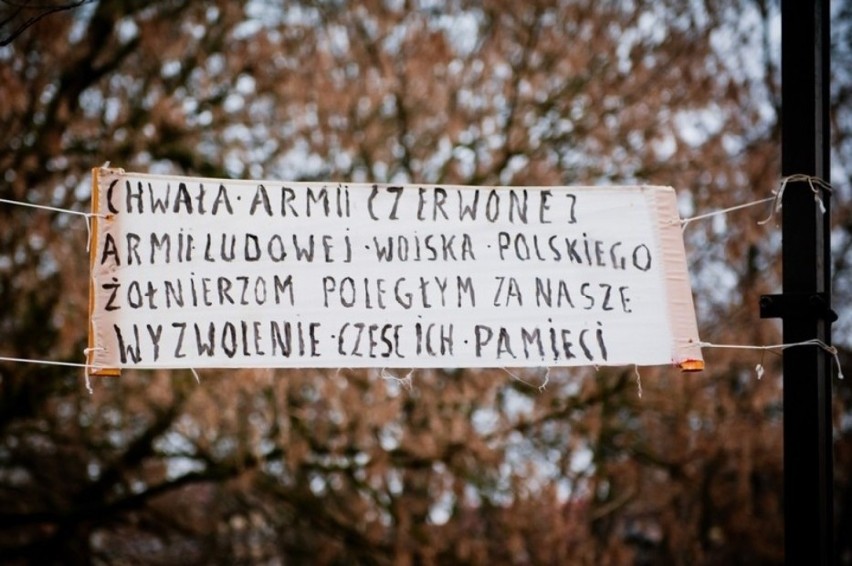 CHWAŁA·ARMII CZERWONEJ
ARMII LUDOWEJ·WOJSKA·POLSKIEGO
ŻOŁNIERZOM POLEGŁYM ZA NASZE
WYZWOLENIE·CZEŚĆ ICH·PAMIĘCI